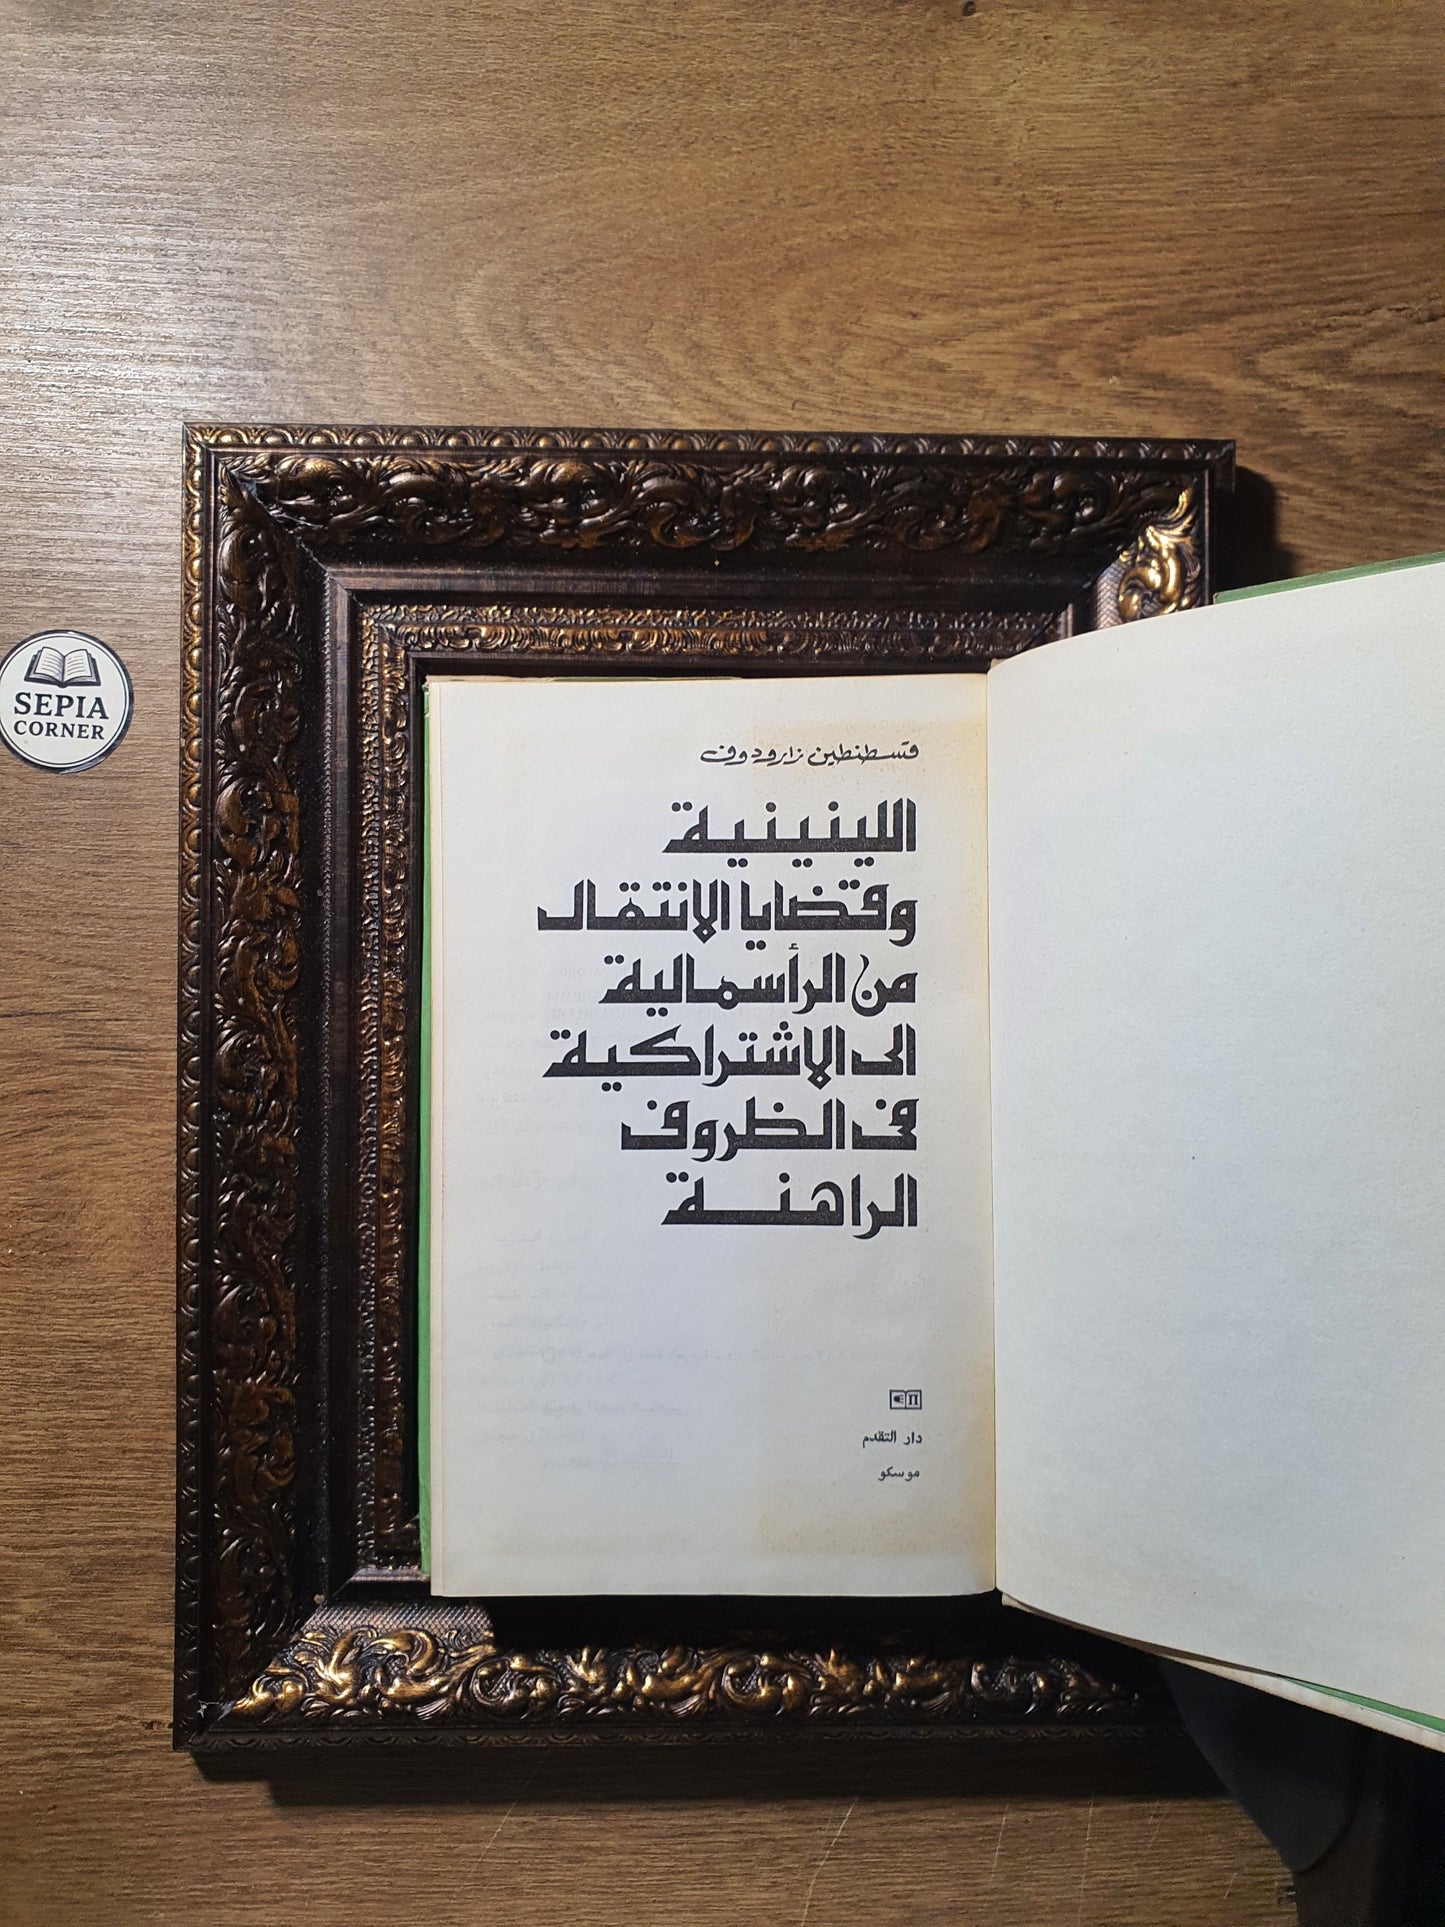 SEPIA
CORNER
قسطنطين زارودوف
اللينينية
وقضايا الانتقال
من الرأسمالية
الى الاشتراكية
فى الظروف
الراهنة
П
دار التقدم
موسكو